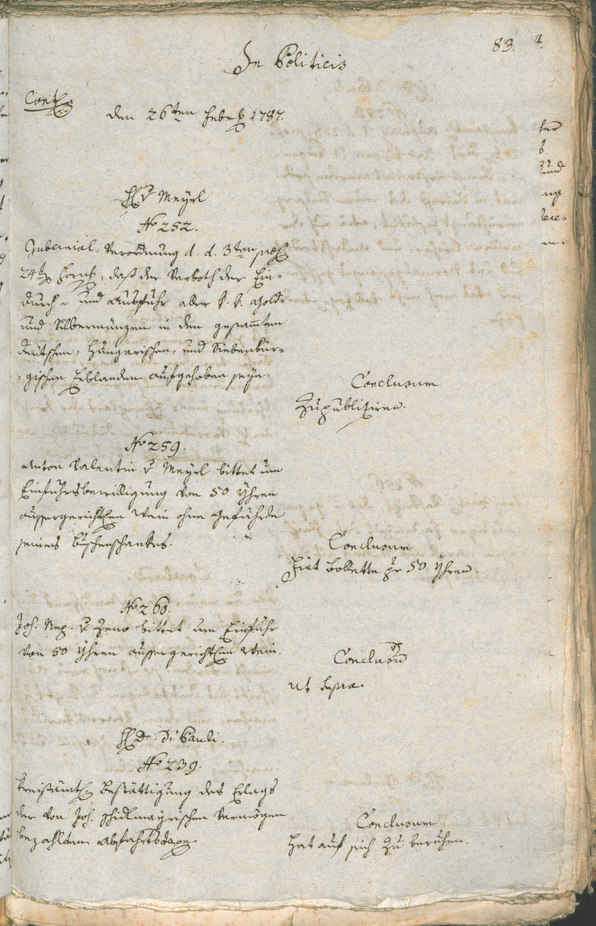 83.
In Politicis
Cont.
den 26ten Febr. 1787.
H. v Meyrl
No 252.
Gubernial Verordnung d. d. 3ten
24. daß der Verboth der Ein-
und Ausfuhr aller k. k. Gold-
und Silbermünzen in den gesamten
deutschen, Hungarischen, und Siebenbür-
gischen Erblanden aufgehoben seye.
Conclusum
Zu publiziren.
No 259.
Anton Valentin v Meyrl bittet um
Einfuhrsbewilligung von 50 Yhren
aussergerichten Wein ohne Gefährde
seines Buschenschankes.
Conclusum
Fiat Bollette pr 50 Yhren.
No 260.
Joh. Nep. v Zeno bittet um Einfuhr
von 50 Yhren aussergerichten Wein.
Conclusum
ut supra.
H. Di Pauli.
No 239.
Kreisämtl. Bestättigung des Erlags
der von Joh. Vermögen
bezahlten Abfahrts
Conclusum
Hat auf sich zu beruhen.